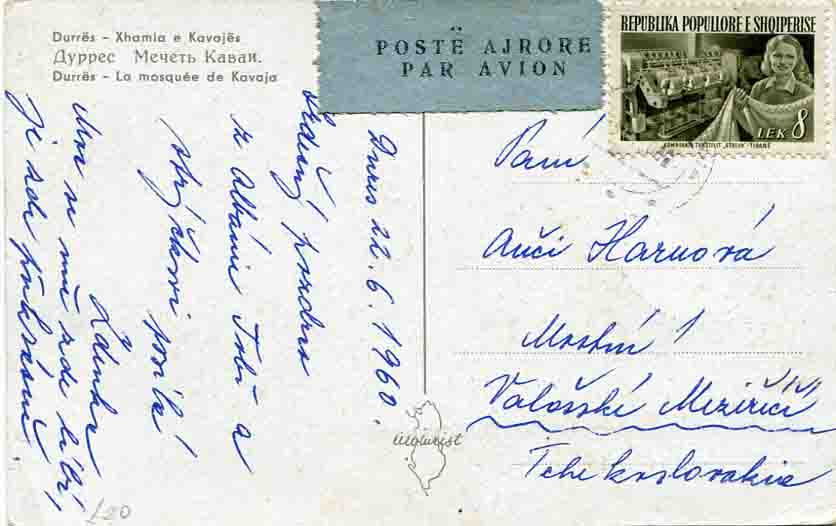 Durrës - Xhamia e Kavajës
Дуррес Мечеть Каваи.
Durrës - La mosquée de Kavaja
POSTË AJRORE
PAR AVION
REPUBLIKA POPULLORE E SHQIPERISE
LEK 8
KOMBINATI TEKSTILIT "STALIN" - TIRANË
Durrës 22.6.1960.
Srdečný pozdrav
z Albánie Tobě a
strýčkovi posílá
Zdenka
Moc se mě zde líbí,
je zde překrásně
Paní
Anči Harnová
Mostní 1
Valašské Meziříčí
Tchekoslovakie
albturist
£20